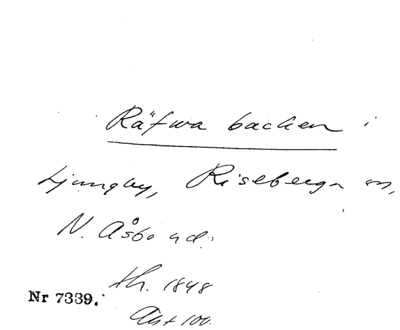 Räfwa backen i
Ljungby, Riseberga sn,
N. Åsbo hd.
th. 1848
Nr 7339.
Akt 100.